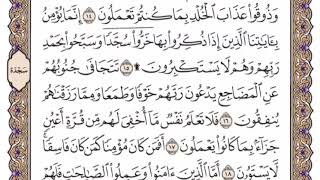 وَذُوقُوا۟ عَذَابَ ٱلْخُلْدِ بِمَا كُنتُمْ تَعْمَلُونَ ١٤ إِنَّمَا يُؤْمِنُ
بِـَٔايَـٰتِنَا ٱلَّذِينَ إِذَا ذُكِّرُوا۟ بِهَا خَرُّوا۟ سُجَّدًا وَسَبَّحُوا۟ بِحَمْدِ
رَبِّهِمْ وَهُمْ لَا يَسْتَكْبِرُونَ ۩ ١٥ تَتَجَافَىٰ جُنُوبُهُمْ
عَنِ ٱلْمَضَاجِعِ يَدْعُونَ رَبَّهُمْ خَوْفًا وَطَمَعًا وَمِمَّا رَزَقْنَـٰهُمْ
يُنفِقُونَ ١٦ فَلَا تَعْلَمُ نَفْسٌ مَّآ أُخْفِىَ لَهُم مِّن قُرَّةِ أَعْيُنٍ
جَزَآءًۢ بِمَا كَانُوا۟ يَعْمَلُونَ ١٧ أَفَمَن كَانَ مُؤْمِنًا كَمَن كَانَ فَاسِقًا ۚ
لَّا يَسْتَوُۥنَ ١٨ أَمَّا ٱلَّذِينَ ءَامَنُوا۟ وَعَمِلُوا۟ ٱلصَّـٰلِحَـٰتِ فَلَهُمْ
سجدة